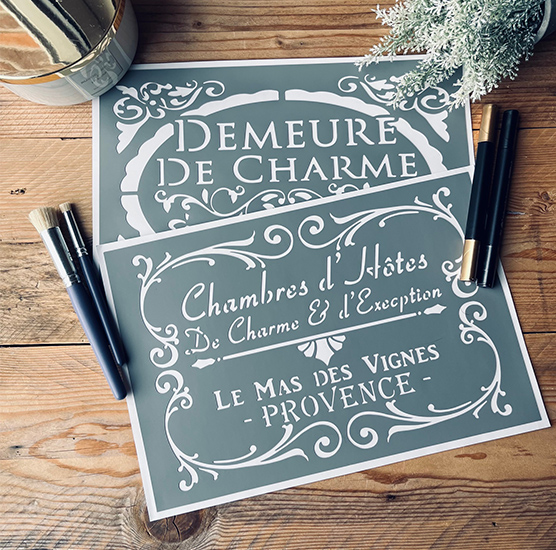 Demeure
De Charme
Chambres d'Hôtes
De Charme & d'Execption
Le Mas des Vignes
- PROVENCE -